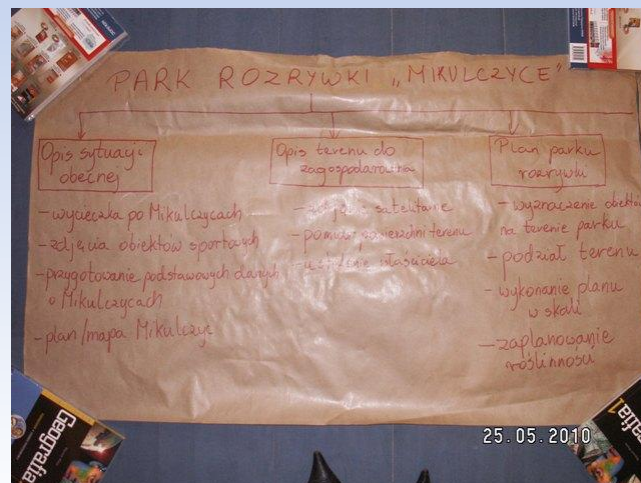 PARK ROZRYWKI „MIKULCZYCE”
Opis sytuacji
obecnej
- wycieczka po Mikulczycach
- zdjęcia obiektów sportowych
- przygotowanie podstawowych danych
o Mikulczycach
- plan/mapa Mikulczyc
Opis terenu do
zagospodarowania
- zdjęcie satelitarne
- pomiar powierzchni terenu
- właściciela
Plan parku
rozrywki
- wyznaczenie obiektów
na terenie parku
- podział terenu
- wykonanie planu
w skali
- zaplanowanie
roślinności
Geografia
25.05.2010